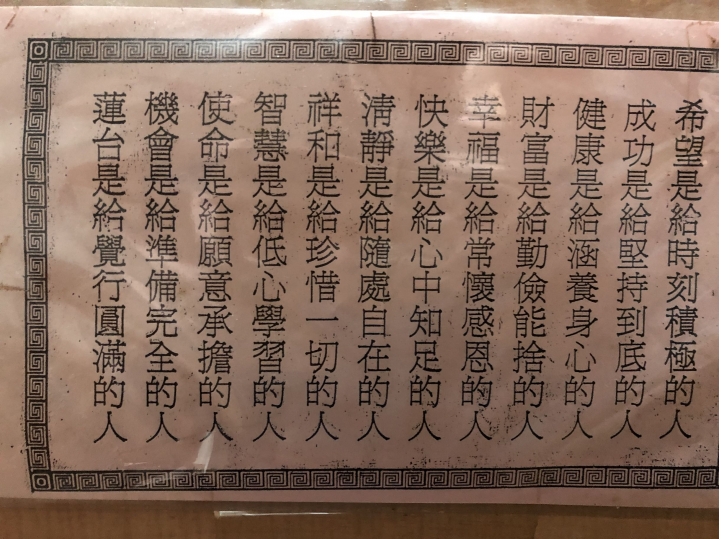 希望是給時刻積極的人
成功是給堅持到底的人
健康是給涵養身心的人
財富是給勤儉能捨的人
幸福是給常懷感恩的人
快樂是給心中知足的人
清靜是給隨處自在的人
祥和是給珍惜一切的人
智慧是給低心學習的人
使命是給願意承擔的人
機會是給準備完全的人
蓮台是給覺行圓滿的人